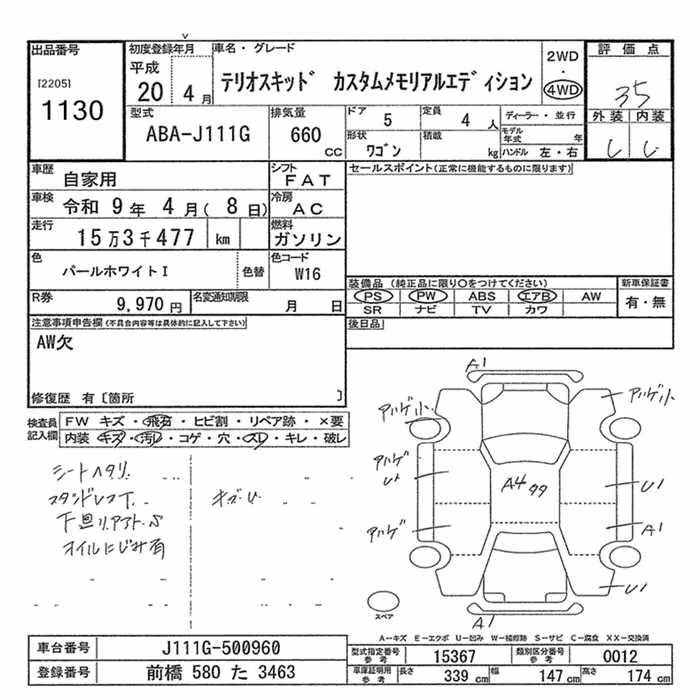 出品番号
[2205]
1130
初度登録年月
平成
20 4月
車名・グレード
テリオスキッド カスタムメモリアルエディション
2WD
・
4WD
評価点
35
外装 内装
し し
型式
ABA-J111G
排気量
660 cc
ドア
5
定員
4 人
形状
ワゴン
積載
kg
ディーラー・並行
モデル年式 年
ハンドル 左・右
車歴
自家用
シフト
FAT
車検
令和 9年 4月( 8日)
冷房
AC
走行
15万3千477 km
燃料
ガソリン
色
パールホワイトI
色替
色コード
W16
R券
9,970円
名変通知期限
月 日
セールスポイント(正常に機能するものに限ります)
装備品 (純正品に限り〇をつけてください)
PS PW ABS エアB AW
SR ナビ TV カワ
新車保証書
有・無
後日品
注意事項申告欄(不具合内容等は具体的に記入して下さい)
AW欠
修復歴 有[箇所 ]
検査員記入欄
FW キズ・飛石・ヒビ割・リペア跡・×要
内装・キズ・汚レ・コゲ・穴・スレ・キレ・破レ
シートヘタリ
キズU
オイルにじみ有
A1
アルゲ小
アルゲ小
アルゲ
A4
U1
アルゲ
A1
U1
A1
スペア
A-キズ E-エクボ U-凹み W-補修跡 S-サビ C-腐食 XX-交換済
車台番号
J111G-500960
登録番号
前橋 580 た 3463
型式指定番号
参考
15367
類別区分番号
参考
0012
車庫証明用
参考
長さ
339 cm
幅
147 cm
高さ
174 cm